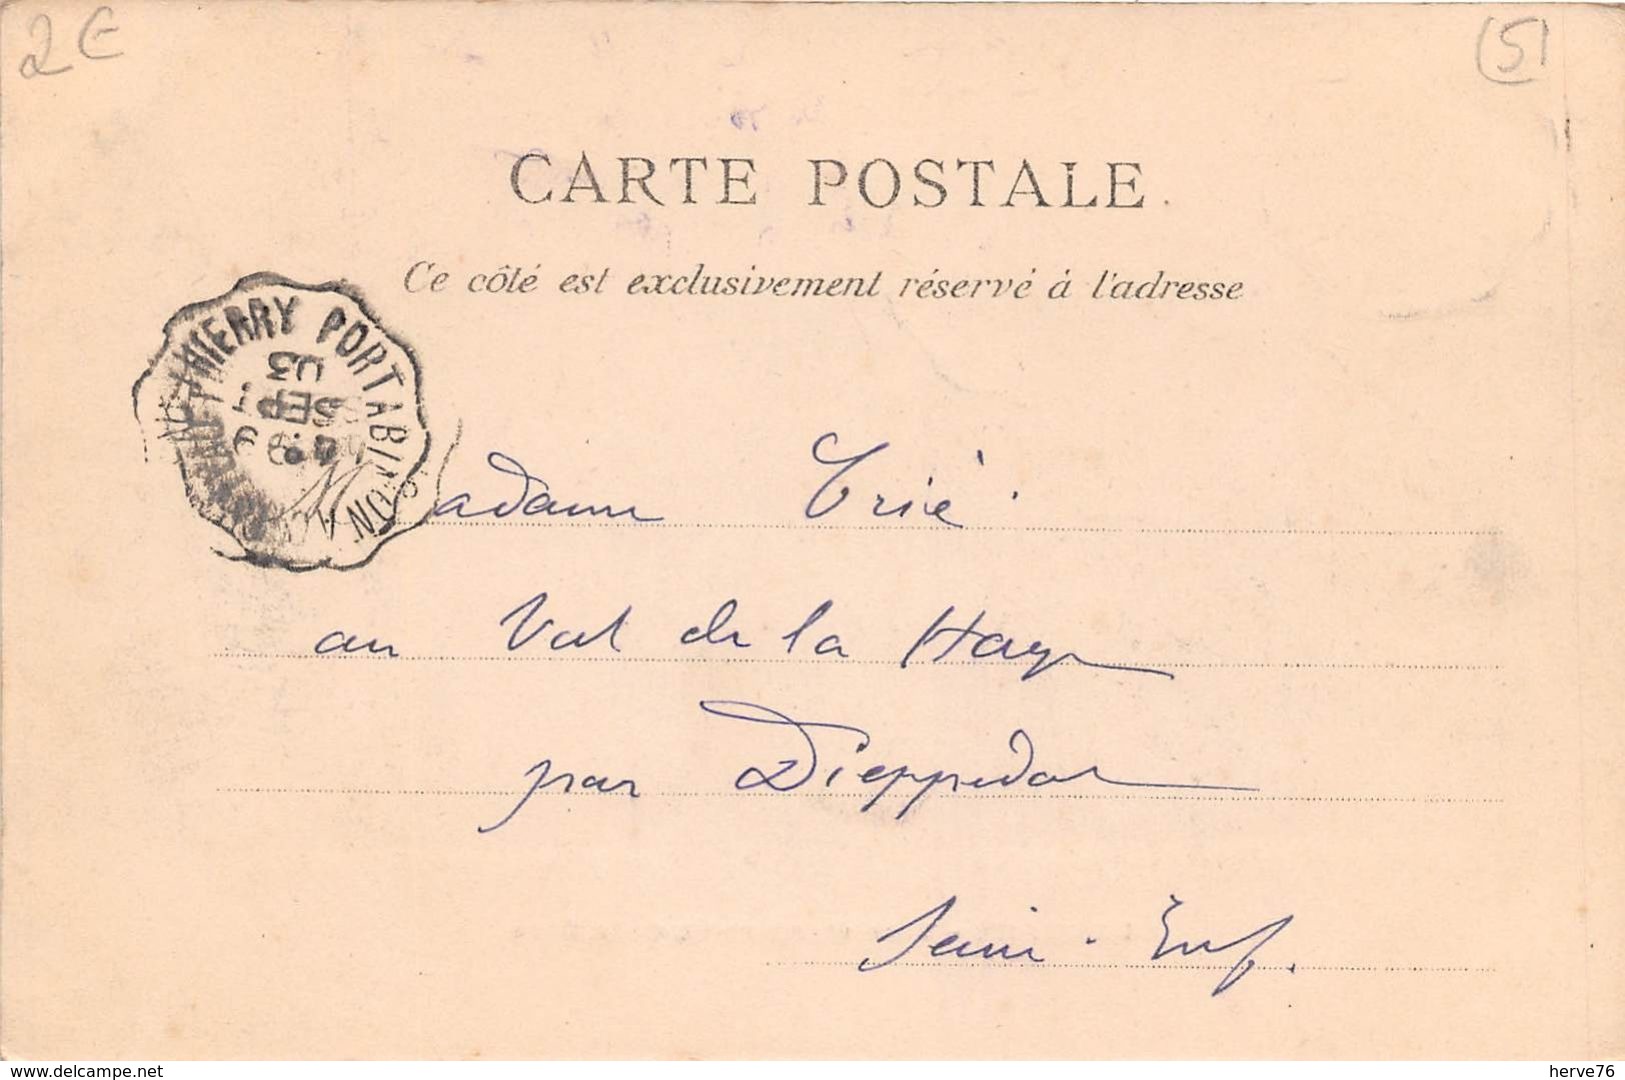 2€
51
CARTE POSTALE.
Ce côté est exclusivement réservé à l'adresse
THIERRY PORT A BINSON
03
SEPT
9
Madame Trié.
au Val de la Haye
par Dieppedal
Seine-Inf.
www.delcampe.net
herve76